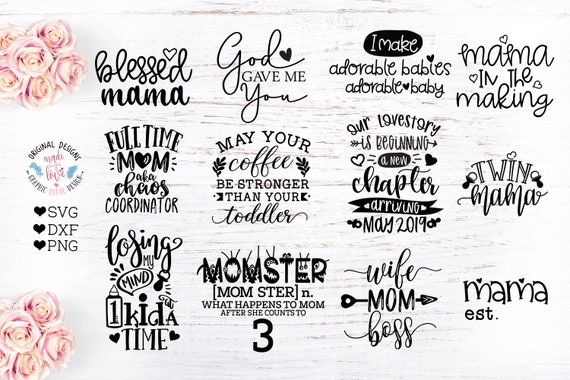 blessed
mama
God
GAVE ME
You
I make
adorable babies
adorable baby
mama
IN THE
making
ORIGINAL DESIGNS
made
with
love
GRAPHIC HOUSE DESIGN
SVG
DXF
PNG
FULL TIME
MOM
aka
chaos
COORDINATOR
MAY YOUR
coffee
BE STRONGER
THAN YOUR
toddler
our lovestory
IS BEGINNING
a new
chapter
arriving
MAY 2019
TWIN
mama
losing
MY
MIND
1 kid
AT
A
TIME
MOMSTER
[MOM STER] n.
WHAT HAPPENS TO MOM
AFTER SHE COUNTS TO
3
wife
MOM
boss
mama
est.